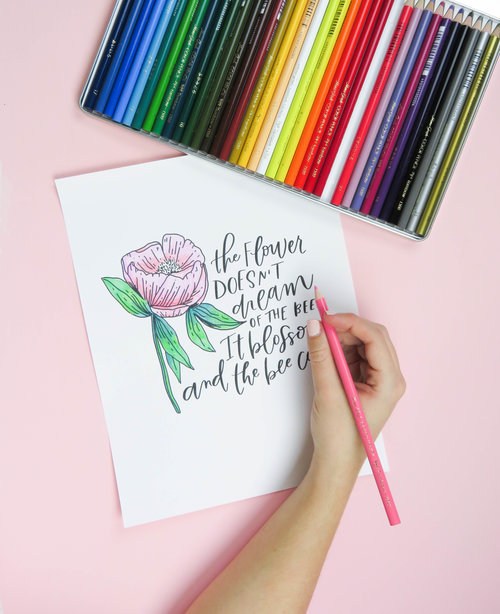 the Flower
DOESN'T
dream
OF THE BEE
It blosso
and the bee c